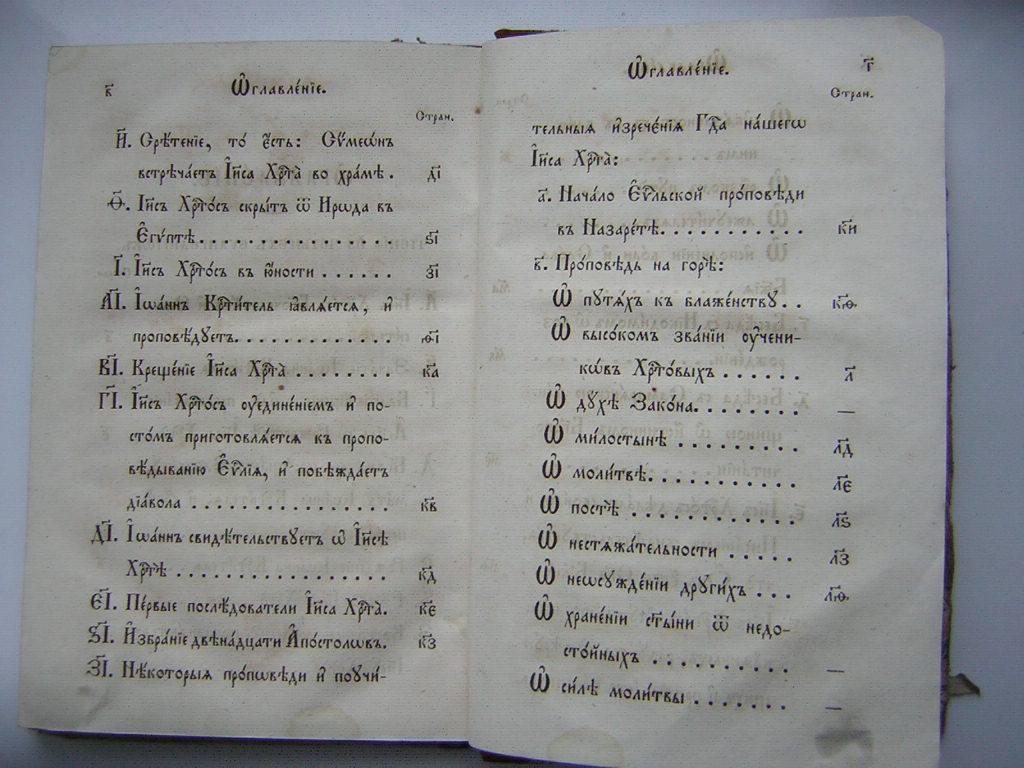 в҃
Ѡ҆главле́нїе.
Стран.
И҃. Срѣ́тенїе, то̀ є҆́сть: Сѷмеѡ́нъ
встрѣча́етъ І҆и҃са Хрⷭ҇та̀ во хра́мѣ. д҃і
Ѳ҃. І҆и҃съ Хрⷭ҇то́съ скры́тъ ѿ И́рѡда въ
Є҆гѵ́птѣ. . . . . . . . . . . . . . . ѕ҃і
І҃. І҆и҃съ Хрⷭ҇то́съ въ ю҆́ности . . . . . . з҃і
А҃І. І҆ѡа́ннъ Крⷭ҇ти́тель ꙗ҆вля́ется, и҆
проповѣ́дуетъ. . . . . . . . . . . . . ѳ҃і
В҃І. Креще́нїе І҆и҃са Хрⷭ҇та̀ . . . . . . . . к҃а
Г҃І. І҆и҃съ Хрⷭ҇то́съ оу҆едине́нїемъ и҆ по-
сто́мъ приготовля́ется къ пропо-
вѣ́дыванїю Є҆ѵⷢ҇лїѧ, и҆ побѣжда́етъ
дїа́вола . . . . . . . . . . . . . . . . к҃в
Д҃І. І҆ѡа́ннъ свидѣ́тельствуетъ ѡ҆ І҆и҃сѣ
Хрⷭ҇тѣ̀ . . . . . . . . . . . . . . . . . к҃д
Є҃І. Пе́рвые послѣ́дователи І҆и҃са Хрⷭ҇та̀. к҃є
Ѕ҃І. И҆збра́нїе двѣна́дцати А҆по́столѡвъ. к҃з
З҃І. Нѣ́которыя про́пѡвѣди и҆ поучи́-
Ѡ҆главле́нїе.
г҃
Стран.
тельныя и҆зрече́нїѧ Гдⷭ҇а на́шегѡ
І҆и҃са Хрⷭ҇та̀:
а҃. Нача́ло Є҆ѵⷢ҇льской про́повѣди
въ Назаре́тѣ. . . . . . . . . . к҃и
в҃. Про́повѣдь на горѣ̀:
Ѡ҆ путѧ́хъ къ блаже́нству. . к҃ѳ
Ѡ҆ высо́комъ зва́нїи оу҆ченн-
кѡ́въ Хрⷭ҇то́выхъ . . . . . . л҃
Ѡ҆ дꙋ́хѣ Зако́на. . . . . . . . —
Ѡ҆ ми́лостынѣ . . . . . . . . . л҃д
Ѡ҆ моли́твѣ. . . . . . . . . . . л҃є
Ѡ҆ постѣ̀ . . . . . . . . . . . . л҃ѕ
Ѡ҆ нестѧжа́тельности . . . . . л҃з
Ѡ҆ неѡсужде́нїи други́хъ . . . л҃ѳ
Ѡ҆ хране́нїи ст҃ы́ни ѿ недо-
сто́йныхъ . . . . . . . . . . —
Ѡ҆ си́лѣ моли́твы . . . . . . . —